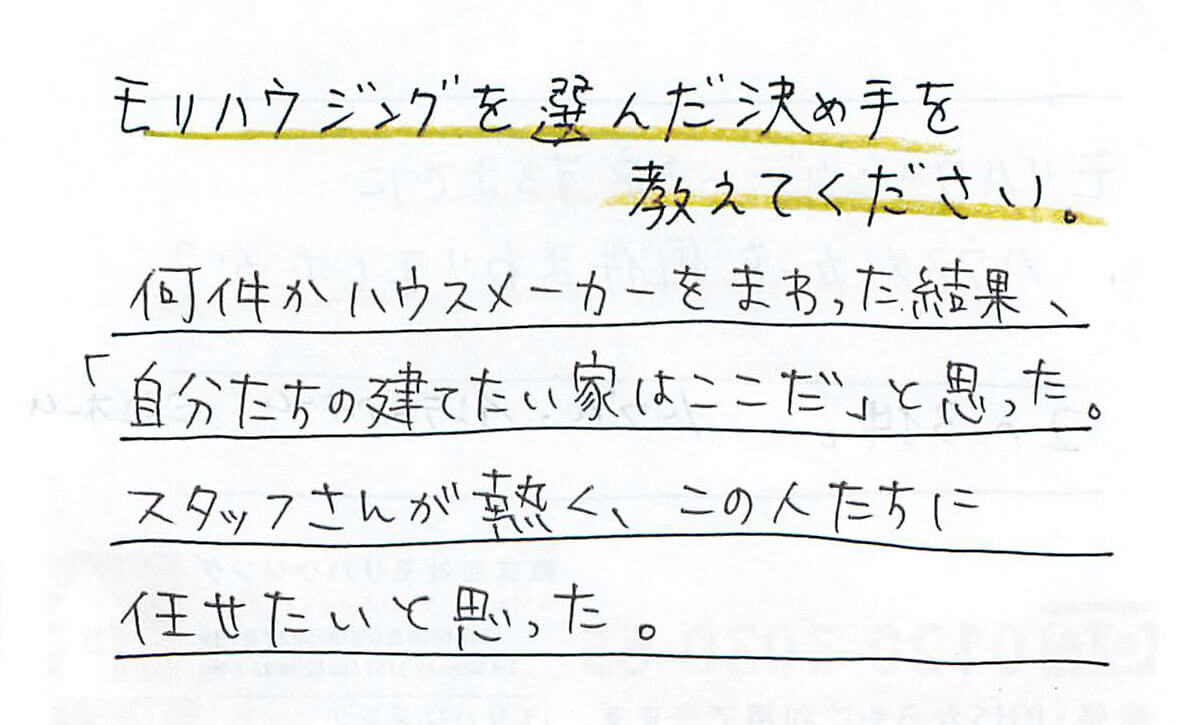 モリハウジングを選んだ決め手を
教えてください。
何件かハウスメーカーをまわった結果、
「自分たちの建てたい家はここだ」と思った。
スタッフさんが熱く、この人たちに
任せたいと思った。